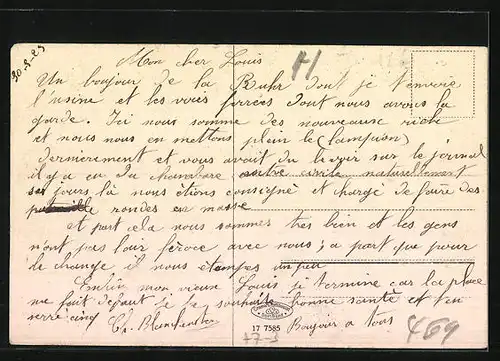 30-8-23
Mon cher Louis
Un bonjour de la Ruhr dont je t'envoie
l'usine et les voies ferrées dont nous avons la
garde. Ici nous somme des nouveaux rich
et nous nous en mettons plein le (lampion)
dernierement et vous avait du le voir sur le journal
il y a eu du chambare naturellement
ses jours là nous étions consigné et chargé de faire des
rondes en masse
et part cela nous sommes très bien et les gens
n'ont pas l'air féroce avec nous, a part que pour
le change il nous un peu
Enfin mon vieux Louis je termine car la place
me fait defaut je te souhaite bonne santé et t'en
serre cinq
Bonjour a tous
17 7585
77-3
469